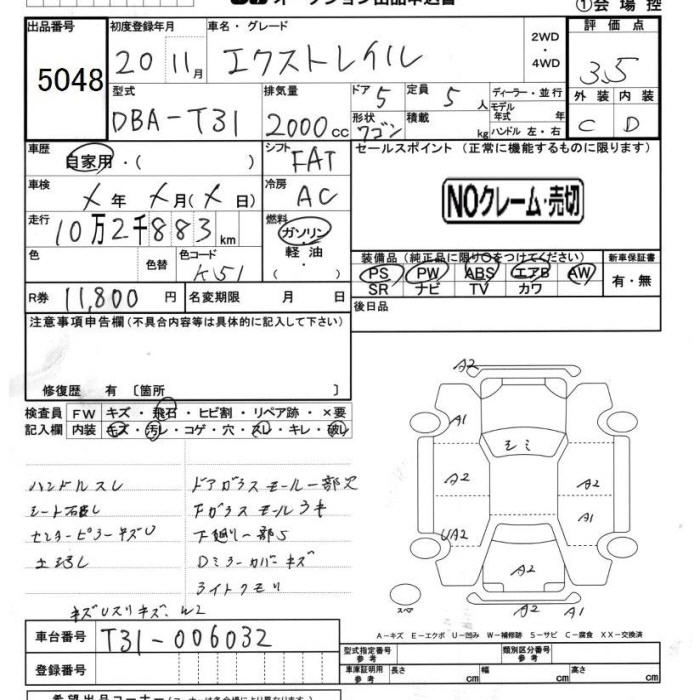 オークション出品申込書
①会場控
出品番号
5048
初度登録年月
20 11月
車名・グレード
エクストレイル
2WD・4WD
評価点
3.5
型式
DBA-T31
排気量
2000cc
ドア 5
定員 5人
形状 ワゴン
積載 kg
ディーラー・並行
モデル年式 年
ハンドル 左・右
外装 内装
C D
車歴
自家用・( )
シフト
FAT
セールスポイント (正常に機能するものに限ります)
車検
X年 X月(X日)
冷房
AC
NOクレーム・売切
走行
10万2千883km
燃料
ガソリン・軽油・( )
色
色替
色コード
K51
装備品(純正品に限り○をつけてください)
PS PW ABS エアB AW
SR ナビ TV カワ
新車保証書
有・無
R券 11,800円
名変期限 月 日
後日品
注意事項申告欄(不具合内容等は具体的に記入して下さい)
修復歴 有〔箇所 〕
検査員記入欄
FW キズ・飛石・ヒビ割・リペア跡・×要
内装 キズ・汚レ・コゲ・穴・スレ・キレ・破レ
ハンドルスレ
ドアガラスモール一部欠
シート
Fガラスモール
センターピラーキズU
下廻り一部S
Dミラーカバーキズ
ライトクモリ
キズUスリキズ、W2
A2
A1
モミ
A2
A2
UA2
A1
A2
スペア
A2 A1
A-キズ E-エクボ U-凹み W-補修跡 S-サビ C-腐食 XX-交換済
車台番号
T31-006032
登録番号
型式指定番号 参考
類別区分番号 参考
車庫証明用 参考
長さ
幅
高さ
希望出品コーナー